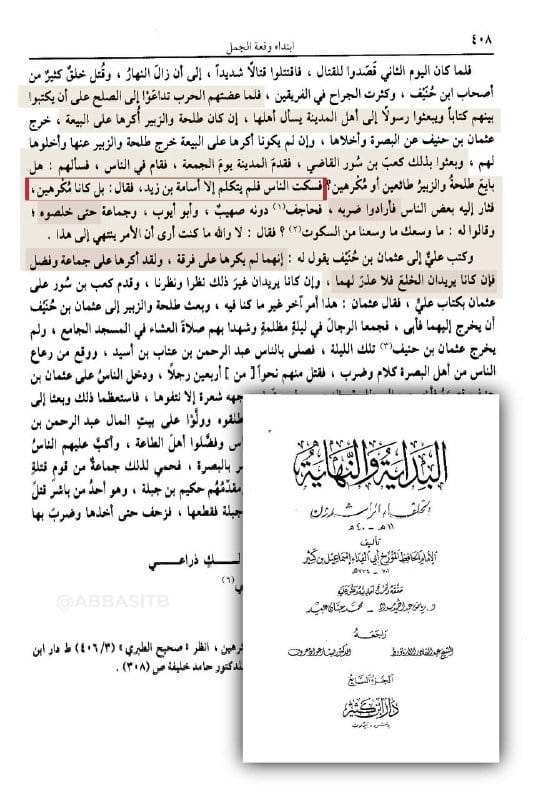 ٤٠٨
ابتداء وقعة الجمل
فلما كان اليوم الثاني قَصَدوا للقتال ، فاقتتلوا قتالاً شديداً ، إلى أن زالَ النهارُ ، وقُتل خلقٌ كثيرٌ من
أصحاب ابن حُنَيْف ، وكثرت الجراح في الفريقين ، فلما عضتهم الحرب تداعَوْا إلى الصلح على أن يكتبوا
بينهم كتاباً ويبعثوا رسولاً إلى أهل المدينة يسأل أهلها ، إن كان طلحة والزبير أُكرها على البيعة ، خرج
عثمان بن حنيف عن البصرة وأخلاها ، وإن لم يكونا أكرها على البيعة خرج طلحة والزبير عنها وأخلوها
لهم ، وبعثوا بذلك كعبَ بن سُور القاضي ، فقدمَ المدينة يومَ الجمعة ، فقام في الناس ، فسألهم : هل
بايعَ طلحةُ والزبيرُ طائعين أو مُكْرهين؟ فسكت الناس فلم يتكلم إلا أسامة بن زيد، فقال: بل كانا مُكْرهين ،
فثار إليه بعض الناس فأرادوا ضربه ، فحاجف(١) دونه صهيبٌ ، وأبو أيوب ، وجماعة حتى خلصوه ؛
وقالوا له : ما وسعك ما وسعنا من السكوت(٢)؟ فقال : لا والله ما كنت أرى أن الأمر ينتهي إلى هذا .
وكتب عليٌّ إلى عثمان بن حُنَيْف يقول له : إنهما لم يكرها على فرقة ، ولقد أكرها على جماعة وفضل
فإن كانا يريدان الخلعَ فلا عذرَ لهما ، وإن كانا يريدان غيرَ ذلك نظرا ونظرنا ، وقدم كعب بن سُور على
عثمان بكتاب عليٍّ ، فقال عثمان : هذا أمر آخر غير ما كنا فيه ، وبعث طلحة والزبير إلى عثمان بن حُنَيْف
أن يخرج إليهما فأبى ، فجمعا الرجال في ليلةٍ مظلمةٍ وشهدا بهم صلاةَ العشاء في المسجد الجامع ، ولم
يخرج عثمان بن حنيف(٣) تلك الليلة ، فصلى بالناس عبد الرحمن بن عتاب بن أسيد ، ووقع من رعاع
الناس من أهل البصرة كلام وضرب ، فقتل منهم نحواً [ من ] أربعين رجلاً ، ودخل الناسُ على عثمان بن
جهه شعرة إلا نتفوها ، فاستعظما ذلك وبعثا إلى
طلقوه وولَّوْا على بيتِ المال عبد الرحمن بن
س وفضَّلوا أهل الطاعة ، وأكبَّ عليهم الناسُ
ر بالبصرة ، فحمي لذلك جماعةٌ من قوم قتلةِ
مقدّمتهُم حكيم بن جبلة ، وهو أحدُ من باشرَ قتلَ
جبلة فقطعها ، فزحف حتى أخذها وضربَ بها
لـكِ ذراعي
ي(٦)
@ABBASITB
كرهين ، انظر «صحيح الطبري» (٤٠٦/٣) ط دار ابن
لدكتور حامد خليفة ص (٣٠٨) .
البداية والنهاية
الخلفاء الراشدون
١١هـ - ٤٠هـ
تأليف
الإمام الحافظ المؤرخ أبي الفداء إسماعيل بن كثير
د. رياض عبد الحميد مراد - محمد حسان عبيد
راجعه
الشيخ عبد القادر الأرناؤوط
الدكتور بشار عواد معروف
الجزء السابع
دار ابن كثير
دمشق - بيروت